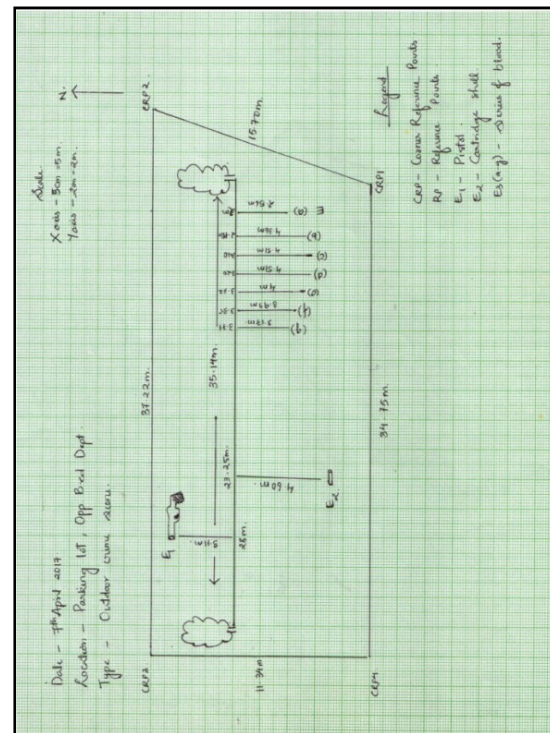 Date - 7th April 2017
Location - Parking lot, Opp B.ed Dept.
Type - Outdoor crime scene.
Scale.
X axis - 5cm - 5m.
Y axis - 2m - 2m.
N.
CRP3
37.22m.
CRP2.
15.70m.
CRP1
34.75m
CRP4
11.34m
35.14m
23.25m.
28m.
E1
E2
4.60m.
(a)
(b)
4.36m
(c)
4.51m
(d)
4.51m
(e)
4m
(f)
3.93m
(g)
Legend
CRP - Corner Reference Points
RP - Reference Points.
E1 - Pistol.
E2 - Cartridge shell.
E3(a-g) - Series of blood.